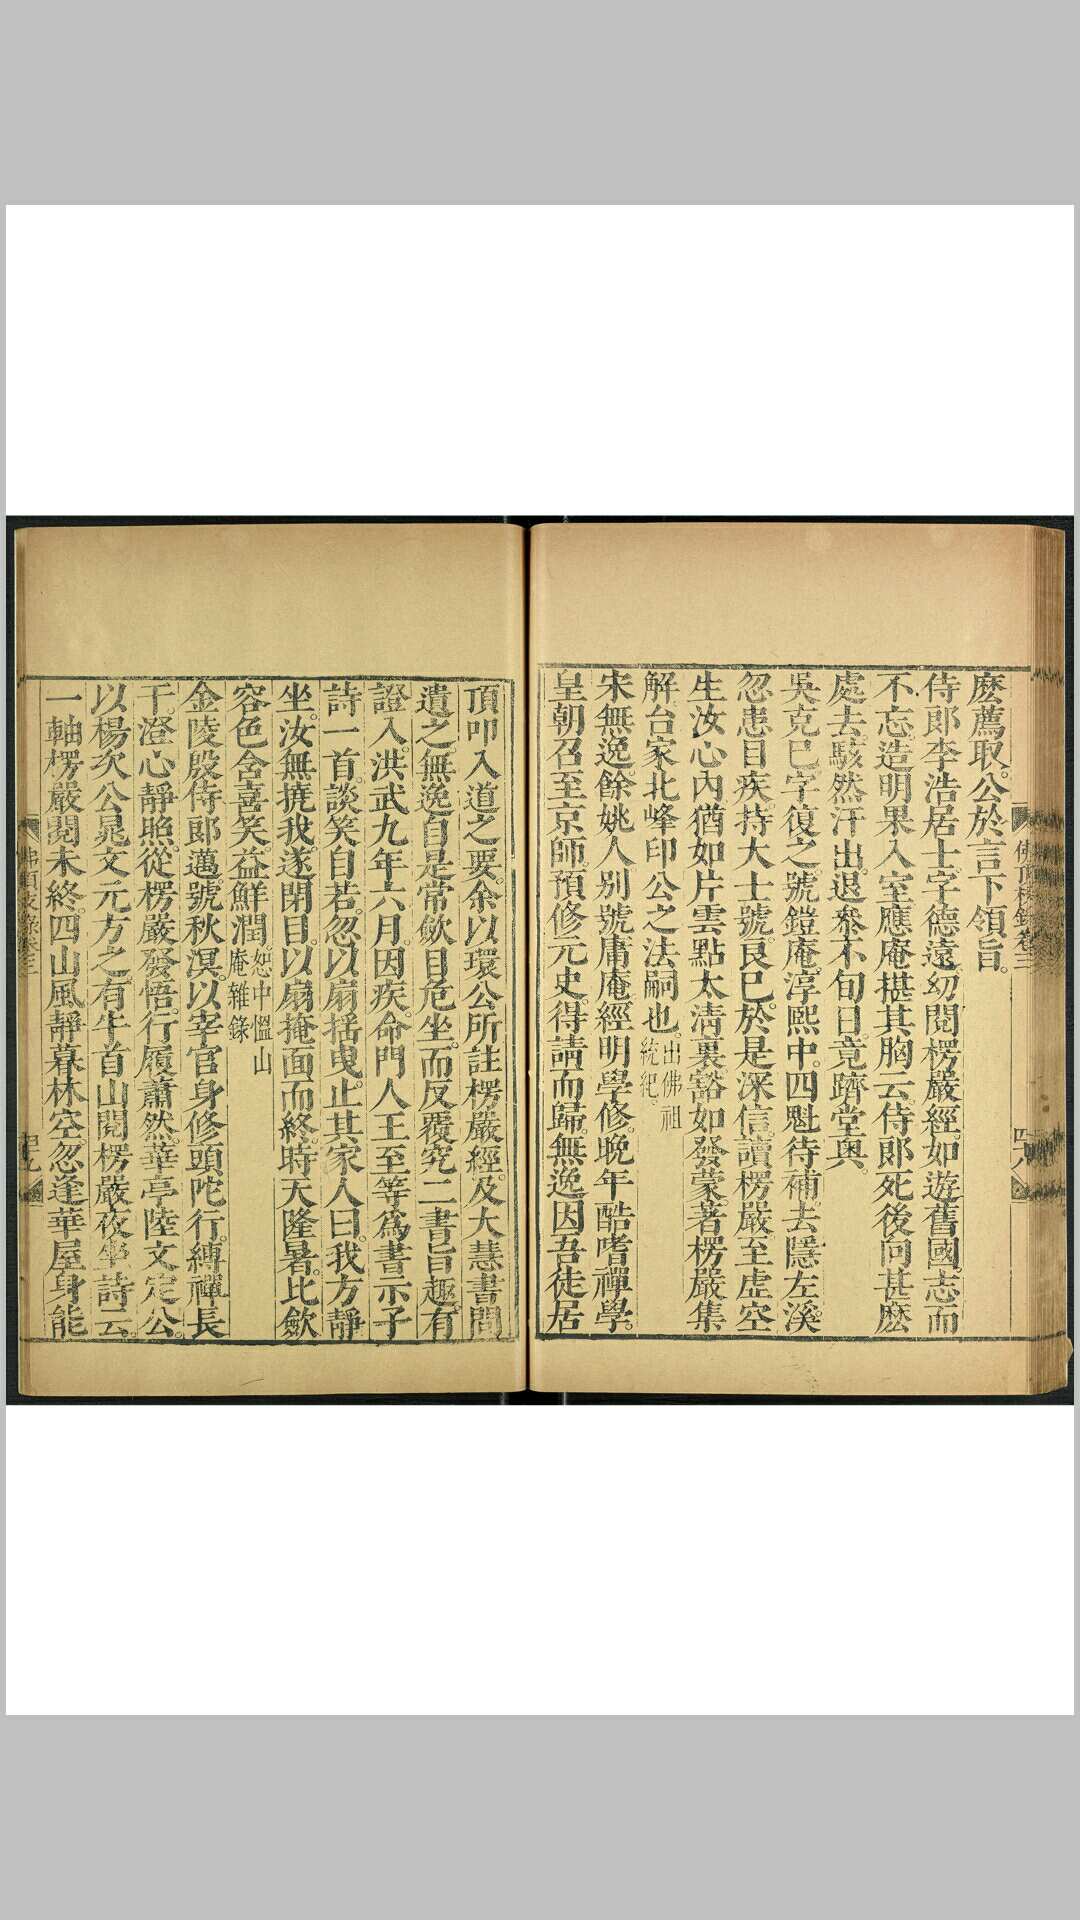 佛頂枝錄卷三
四八
麽薦取。公於言下領旨。
侍郎李浩居士字德遠。幼閱楞嚴經。如遊舊國。志而
不忘。造明果入室。應庵揕其胸云。侍郎死後向甚麽
處去。駭然汗出。退參不旬日。竟躋堂奥。
吳克巳字復之。號鎧庵。淳熙中。四魁待補。去隱左溪。
忽患目疾。持大士號。良巳。於是深信。讀楞嚴。至虛空
生汝心內。猶如片雲點太淸裏。豁如發蒙。著楞嚴集
解。台家北峰印公之法嗣也。出佛祖統紀。
宋無逸。餘姚人。别號庸庵。經明學修。晚年酷嗜禪學。
皇朝召至京師。預修元史。得請而歸。無逸因吾徒居
頂叩入道之要。余以環公所註楞嚴經。及大慧書問
遺之。無逸自是常歛目危坐。而反覆究二書旨趣。有
證入。洪武九年六月。因疾。命門人王至等爲書示子
詩一首。談笑自若。忽以扇揺曳。止其家人曰。我方靜
坐。汝無撓我。遂閉目。以扇掩面而終。時天隆暑。比歛
容色含喜笑。益鮮潤。恕中慍山庵雜錄
金陵殷侍郎邁。號秋溟。以宰官身修頭陀行。縛禪長
干。澄心靜照。從楞嚴發悟。行履蕭然。華亭陸文定公。
以楊次公晁文元方之。有牛首山閱楞嚴夜坐詩云。
一軸楞嚴閱未終。四山風靜暮林空。忽逢華屋身能
佛頂枝錄卷三
四九